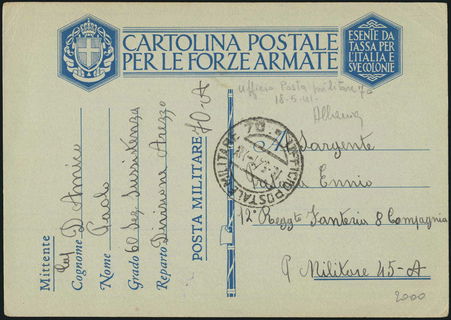 CARTOLINA POSTALE
PER LE FORZE ARMATE
ESENTE DA
TASSA PER
L'ITALIA
E SVE COLONIE
Ufficio Posta militare 7
18-5-41-
Mittente
Cognome D'Amico
Nome Paolo
Grado 60 Sez. Sussistenza
Reparto Divisione Arezzo
POSTA MILITARE 70-A
UFFICIO POSTALE MILITARE 70
Sergente
Ennio
12° Reggto Fanteria 8 Compagnia
P Militare 45-A
2000